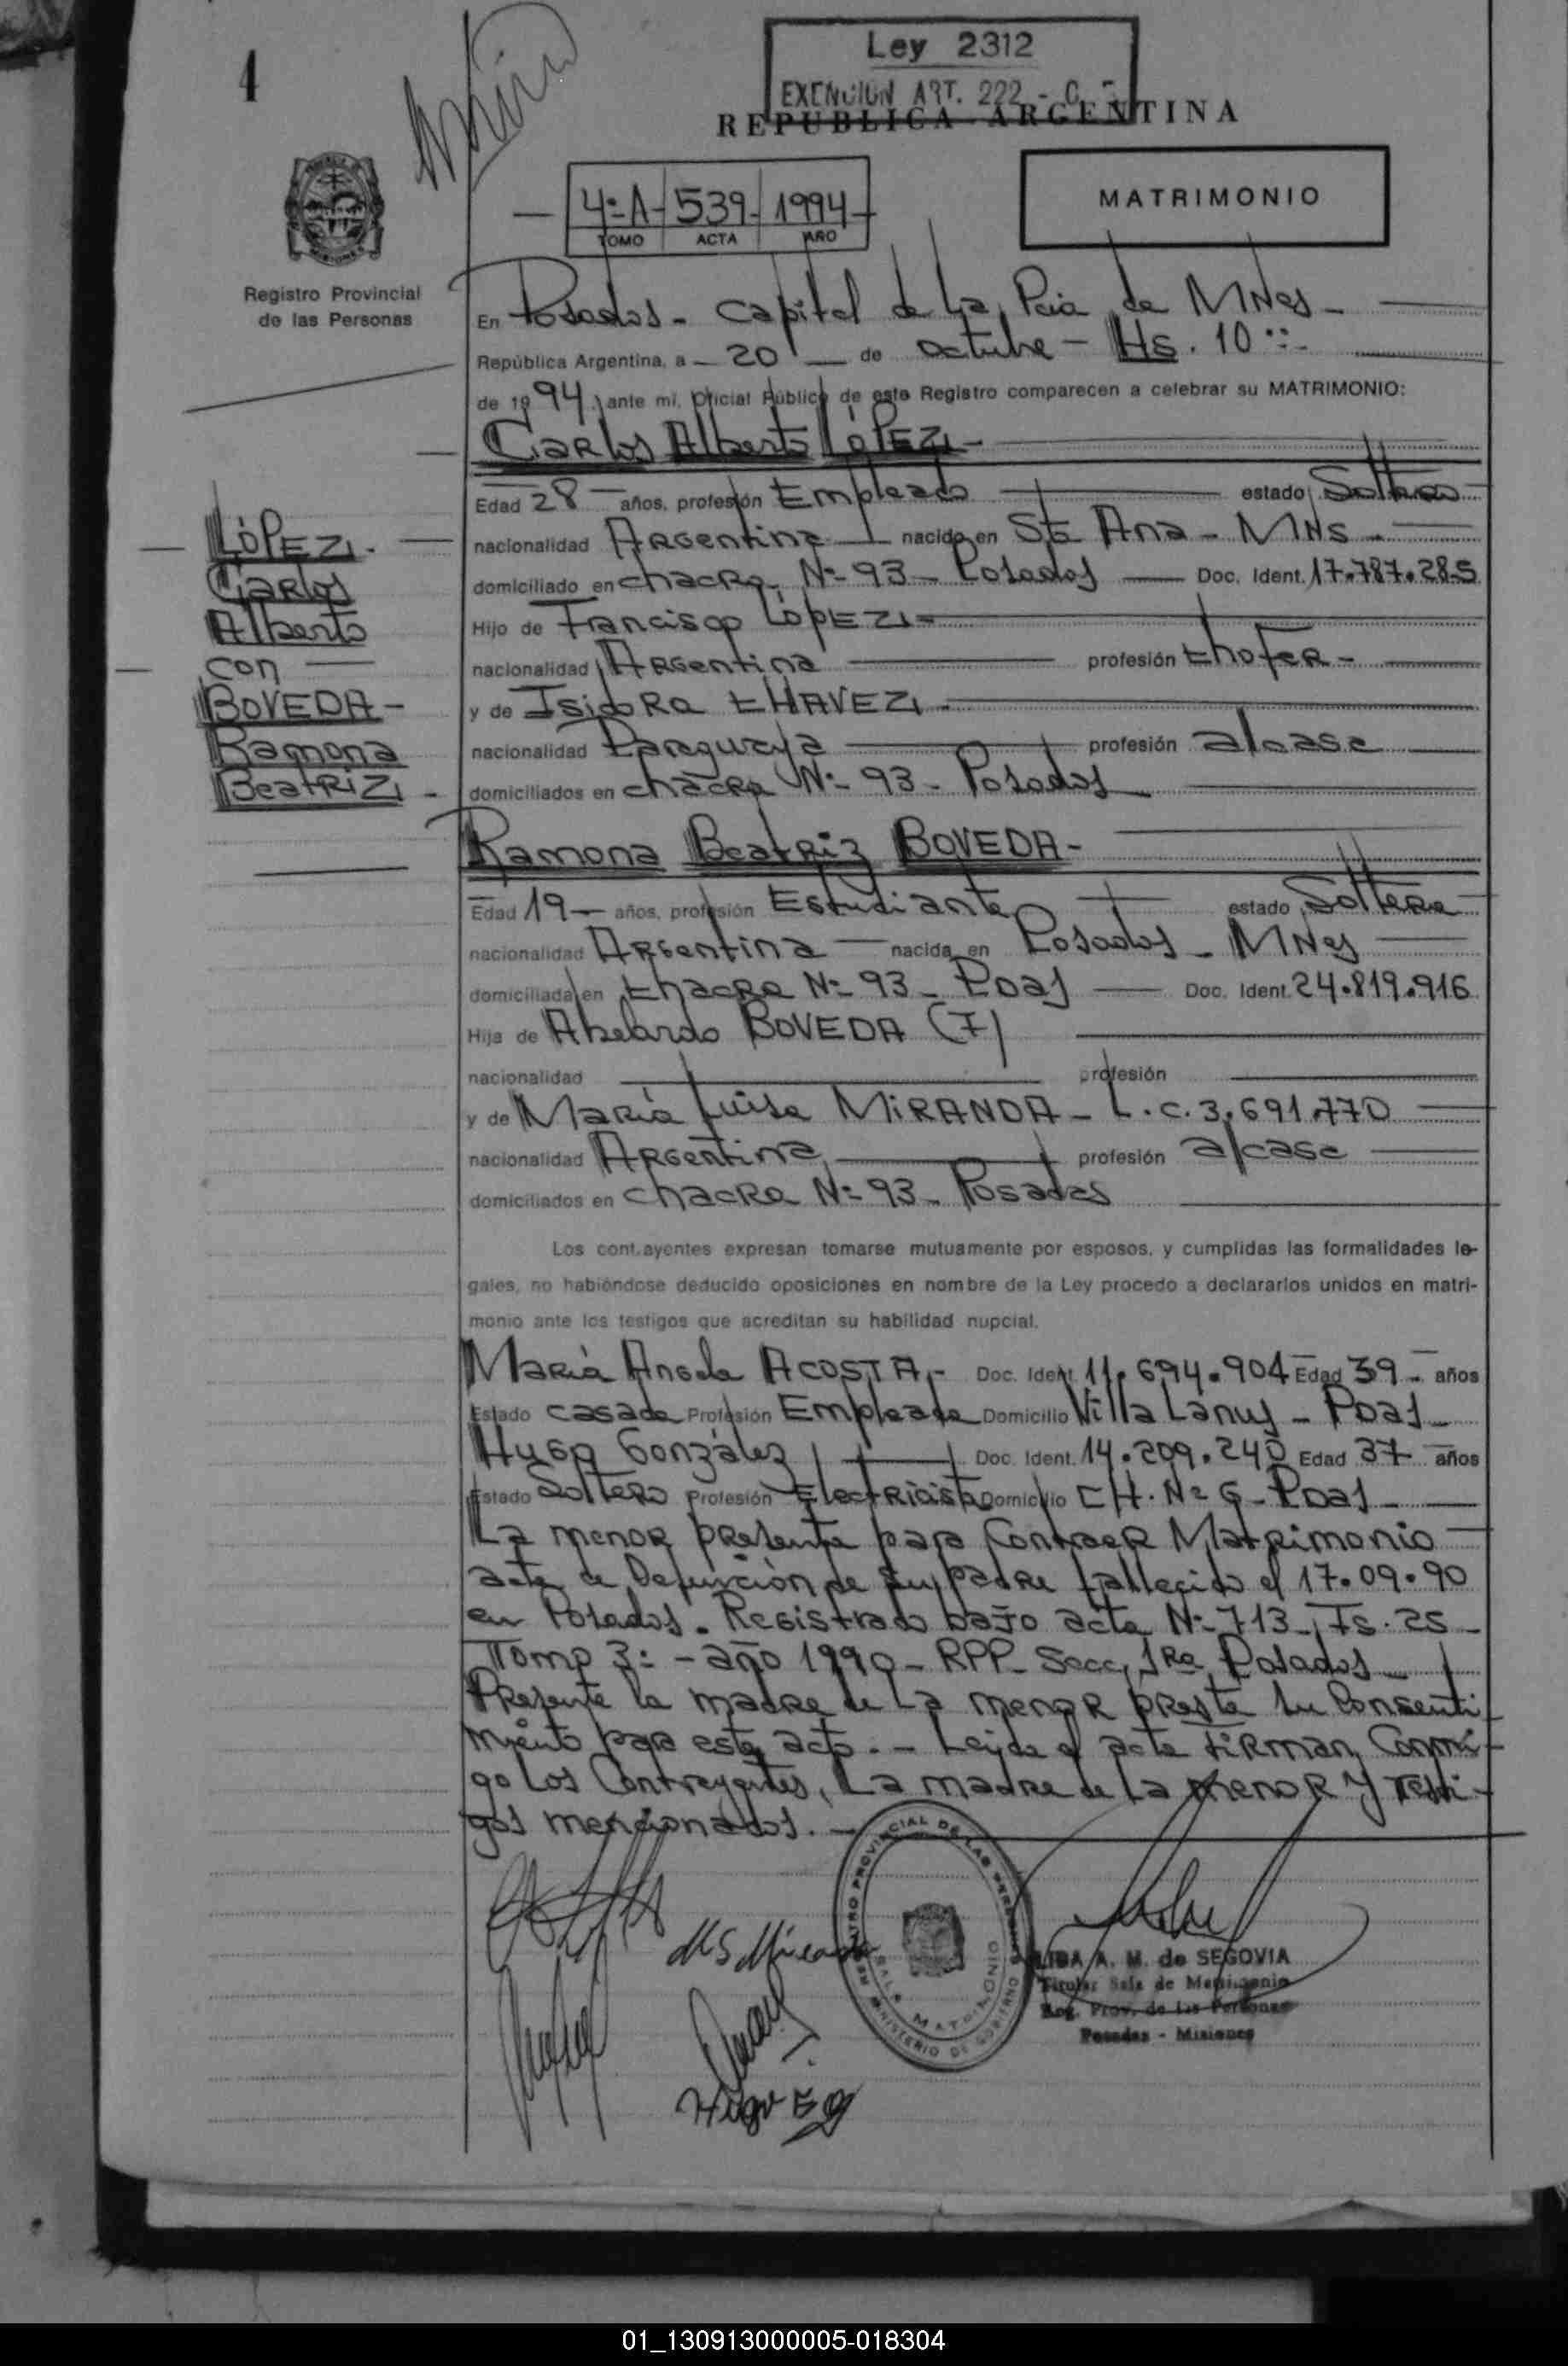 4
Ley 2312
EXENCION ART. 222 - C.
REPUBLICA ARGENTINA
4º-A- 539- 1994-
TOMO ACTA AÑO
MATRIMONIO
Registro Provincial
de las Personas
En Posadas - Capital de la Pcia de MNes -
República Argentina, a - 20 - de octubre - Hs. 10
de 1994, ante mi, Oficial Público de este Registro comparecen a celebrar su MATRIMONIO:
Carlos Alberto LÓPEZ -
Edad 28 - años, profesión Empleado estado Soltero
nacionalidad Argentina nacido en Sta Ana - MNS -
domiciliado en chacra Nº 93 - Posadas Doc. Ident. 17.787.285
Hijo de Francisco LÓPEZ -
nacionalidad Argentina profesión chofer -
y de Isidora CHAVEZ -
nacionalidad Paraguaya profesión a/casa
domiciliados en chacra Nº 93 - Posadas
LÓPEZ -
Carlos
Alberto
con
BOVEDA -
Ramona
Beatriz -
Ramona Beatriz BOVEDA -
Edad 19 - años, profesión Estudiante estado Soltera
nacionalidad Argentina nacida en Posadas - MNes
domiciliada en chacra Nº 93 - Pdas Doc. Ident. 24.819.916
Hija de Abelardo BOVEDA (F)
nacionalidad profesión
y de María Luisa MIRANDA - L.C. 3.691.770
nacionalidad Argentina profesión a/casa
domiciliados en chacra Nº 93 - Posadas
Los contrayentes expresan tomarse mutuamente por esposos, y cumplidas las formalidades le-
gales, no habiéndose deducido oposiciones en nombre de la Ley procedo a declararlos unidos en matri-
monio ante los testigos que acreditan su habilidad nupcial.
María Angela ACOSTA - Doc. Ident. 11.694.904 Edad 39 - años
Estado casada Profesión Empleada Domicilio Villa Lanus - Pdas -
Hugo González Doc. Ident. 14.209.240 Edad 37 años
Estado Soltero Profesión Electricista Domicilio CH. Nº 6 - Pdas -
La menor presenta para Contraer Matrimonio
acta de Defunción de su padre fallecido el 17.09.90
en Posadas. Registrado bajo acta Nº 713 - Fs. 25 -
Tomo 3º - año 1990 - RPP - Secc. 1ra Posadas
Presente la madre de la menor presta su Consenti
miento para este acto. - Leída el acta firman Conmi-
go los Contrayentes, La madre de la menor y Testi-
gos mencionados. -
REGISTRO PROVINCIAL DE LAS PERSONAS
SALA MATRIMONIO
MINISTERIO DE GOBIERNO
A. M. de SEGOVIA
Titular Sala de Matrimonio
Reg. Prov. de las Personas
Posadas - Misiones
01_130913000005-018304